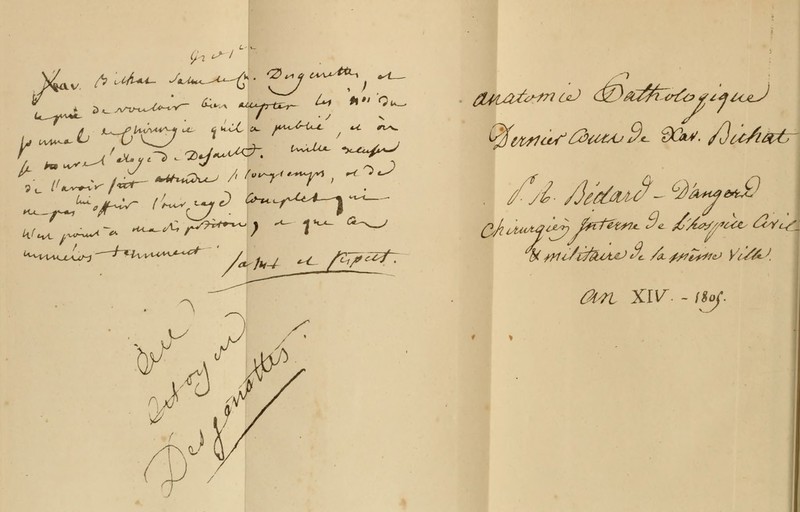 Xav. Bichat Salue le C. Desgenettes, et
le prie de vouloir bien accepter les n.os du
journal de Chirurgie qu'il a publié, et où
se trouve l'éloge de Desault. mille excuses
de l'avoir fait attendre si longtemps, et de
ne pas lui offrir l'ouvrage complet qui
n'est point à ma disposition, et que ces
numéros terminent.
salut et respect.
au
citoyen
Desgenettes.
anatomie Pathologique
Dernier Cours de Xav. Bichat
P. A. Béclard - D'angers
Chirurgien Interne de L'hospice Civil
& militaire de la même Ville.
an XIV. - 1805.